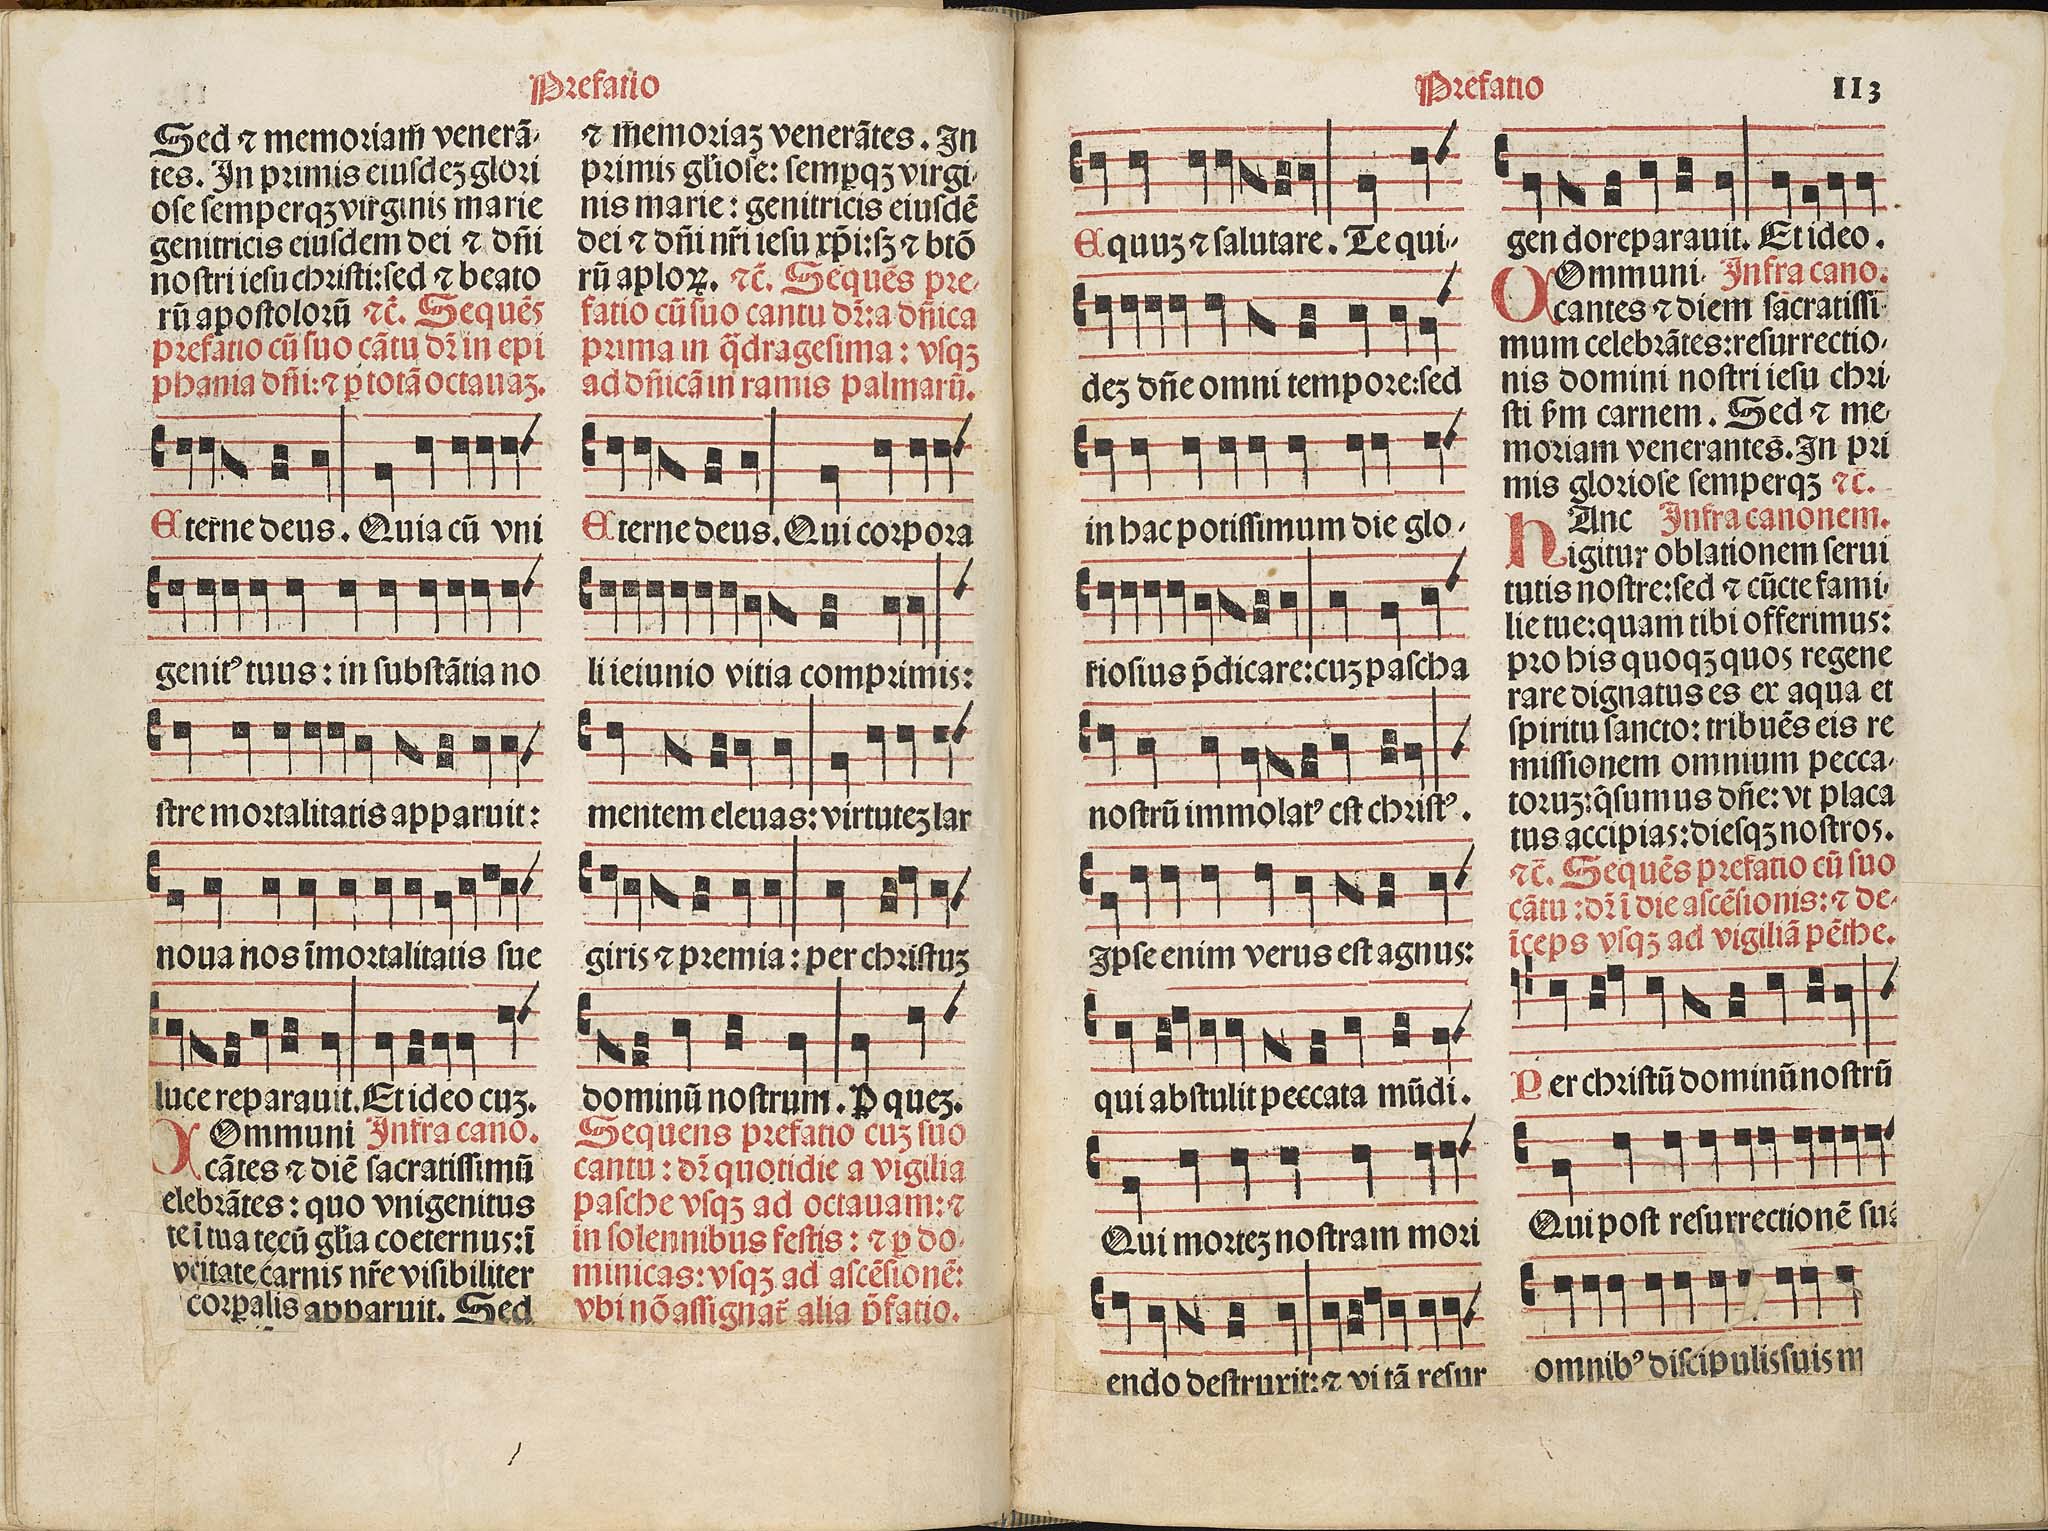 Prefatio
Sed ⁊ memoriam̄ venerā-
tes. In primis eiusdeꝫ glori
ose semperqꝫ virginis marie
genitricis eiusdem dei ⁊ dn̄i
nostri iesu christi: sed ⁊ beato
rū apostolorū ⁊c̄. Sequēs
prefatio cū suo cātu dr̄ in epi
phania dn̄i: ⁊ ꝑ totā octauaꝫ.
Eterne deus. Quia cū vni
genitꝰ tuus: in substātia no
stre mortalitatis apparuit:
noua nos īmortalitatis sue
luce reparauit. Et ideo cuꝫ.
COmmuni Infra cano.
cātes ⁊ diē sacratissimū
elebrātes: quo vnigenitus
te ī tua tecū gl̄ia coeternus: ī
veritate carnis nr̄e visibiliter
corꝑalis apparuit. Sed
⁊ memoriaꝫ venerātes. In
primis gl̄iose: semꝑqꝫ virgi-
nis marie: genitricis eiusdē
dei ⁊ dn̄i nr̄i iesu xp̄i: sꝫ ⁊ btō
rū aploꝝ. ⁊c̄. Sequēs pre-
fatio cū suo cantu dr̄: a dn̄ica
prima in q̄dragesima: vsqꝫ
ad dn̄icā in ramis palmarū.
Eterne deus. Qui corpora
li ieiunio vitia comprimis:
mentem eleuas: virtuteꝫ lar
giris ⁊ premia: per christuꝫ
dominū nostrum. P queꝫ.
Sequens prefatio cuꝫ suo
cantu: dr̄ quotidie a vigilia
pasche vsqꝫ ad octauam: ⁊
in solennibus festis: ⁊ ꝑ do-
minicas: vsqꝫ ad ascēsionē:
vbi nō assignat̄ alia p̄fatio.
Prefatio 113
Equuꝫ ⁊ salutare. Te qui-
deꝫ dn̄e omni tempore: sed
in hac potissimum die glo-
riosius p̄dicare: cuꝫ pascha
nostrū immolatꝰ est christꝰ.
Ipse enim verus est agnus:
qui abstulit peccata mūdi.
Qui morteꝫ nostram mori
endo destruxit: ⁊ vitā resur
gendo reparauit. Et ideo.
COmmuni- Infra cano.
cantes ⁊ diem sacratissi-
mum celebrātes: resurrectio-
nis domini nostri iesu chri-
sti ẜm carnem. Sed ⁊ me-
moriam venerantes. In pri
mis gloriose semperqꝫ ⁊c̄.
hAnc Infra canonem.
igitur oblationem serui
tutis nostre: sed ⁊ cūcte fami-
lie tue: quam tibi offerimus:
pro his quoqꝫ quos regene
rare dignatus es ex aqua et
spiritu sancto: tribuēs eis re
missionem omnium pecca-
toruꝫ: q̄sumus dn̄e: vt placa
tus accipias: diesqꝫ nostros.
⁊c̄. Sequēs prefatio cū suo
cātu: dr̄ ī die ascēsionis: ⁊ de-
īceps vsqꝫ ad vigiliā pēthe.
Per christū dominū nostrū
Qui post resurrectionē suā
omnibꝰ discipulis suis m